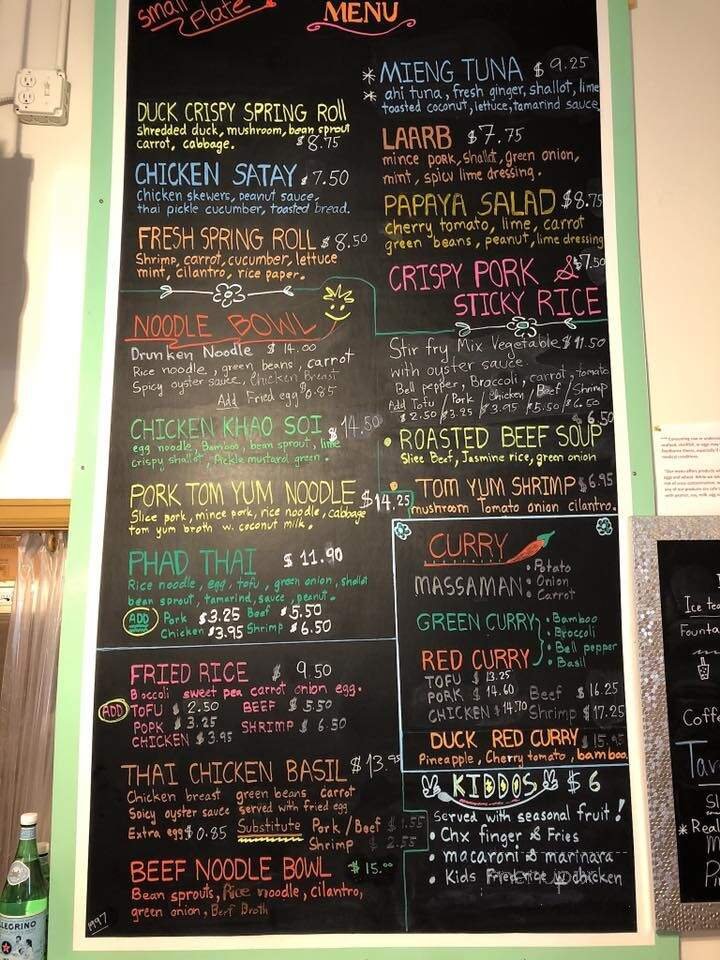 small plate
MENU
DUCK CRISPY SPRING Roll
shredded duck, mushroom, bean sprout
carrot, cabbage. $8.75
CHICKEN SATAY $7.50
Chicken skewers, peanut sauce,
thai pickle cucumber, toasted bread.
FRESH SPRING ROLL $8.50
Shrimp, carrot, cucumber, lettuce
mint, cilantro, rice paper.
* MIENG TUNA $9.25
* ahi tuna, fresh ginger, shallot, lime
toasted coconut, lettuce, tamarind sauce
LAARB $7.75
mince pork, shallot, green onion,
mint, spicy lime dressing.
PAPAYA SALAD $8.75
cherry tomato, lime, carrot
green beans, peanut, lime dressing
CRISPY PORK & $7.50
STICKY RICE
NOODLE BOWL
Drunken Noodle $14.00
Rice noodle, green beans, carrot
Spicy oyster sauce, Chicken Breast
Add Fried egg $0.85
CHICKEN KHAO SOI $14.50
egg noodle, Bamboo, bean sprout, lime
crispy shallot, Pickle mustard green.
PORK TOM YUM NOODLE $14.25
Slice pork, mince pork, rice noodle, cabbage
tom yum broth w. coconut milk.
PHAD THAI $11.90
Rice noodle, egg, tofu, green onion, shallot
bean sprout, tamarind, sauce, peanut.
ADD Pork $3.25 Beef $5.50
Chicken $3.95 Shrimp $6.50
Stir fry Mix Vegetable $11.50
with oyster sauce
Bell pepper, Broccoli, carrot, tomato
Add Tofu / Pork / Chicken / Beef / Shrimp
$2.50 $3.25 $3.95 $5.50 $6.50
$6.50
• ROASTED BEEF SOUP
Slice Beef, Jasmine rice, green onion
TOM YUM SHRIMP $6.95
mushroom Tomato onion cilantro.
CURRY
MASSAMAN • Potato
• Onion
• Carrot
GREEN CURRY • Bamboo
• Broccoli
• Bell pepper
RED CURRY • Basil
TOFU $13.25
PORK $14.60 Beef $16.25
CHICKEN $14.70 Shrimp $17.25
DUCK RED CURRY $15.95
Pineapple, Cherry tomato, bamboo
FRIED RICE $9.50
Broccoli sweet pea carrot onion egg.
ADD TOFU $2.50 BEEF $5.50
PORK $3.25 SHRIMP $6.50
CHICKEN $3.95
THAI CHICKEN BASIL $13.95
Chicken breast green beans carrot
Spicy oyster sauce served with fried egg
Extra egg $0.85 Substitute Pork/Beef $1.55
Shrimp $2.55
BEEF NOODLE BOWL $15.00
Bean sprouts, Rice noodle, cilantro,
green onion, Beef Broth
1997
KIDDOS $6
Served with seasonal fruit!
• Chx finger & Fries
• macaroni & marinara
• Kids Fried rice w chicken
Ice tea
Founta
Coffe
* Real